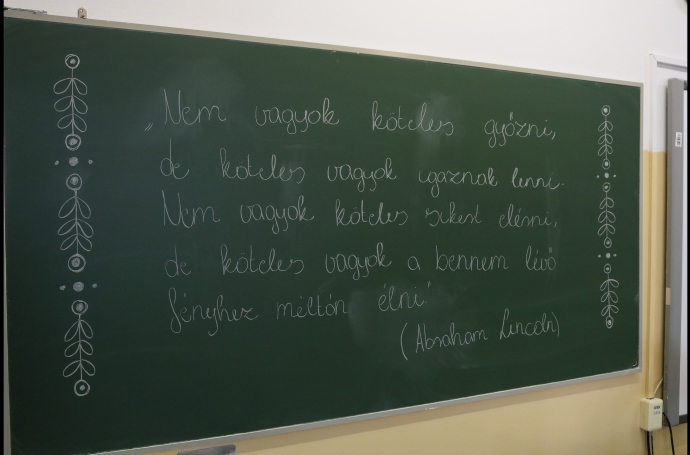 „Nem vagyok köteles győzni,
de köteles vagyok igaznak lenni.
Nem vagyok köteles sikert elérni,
de köteles vagyok a bennem lévő
fényhez méltón élni”
(Abraham Lincoln)